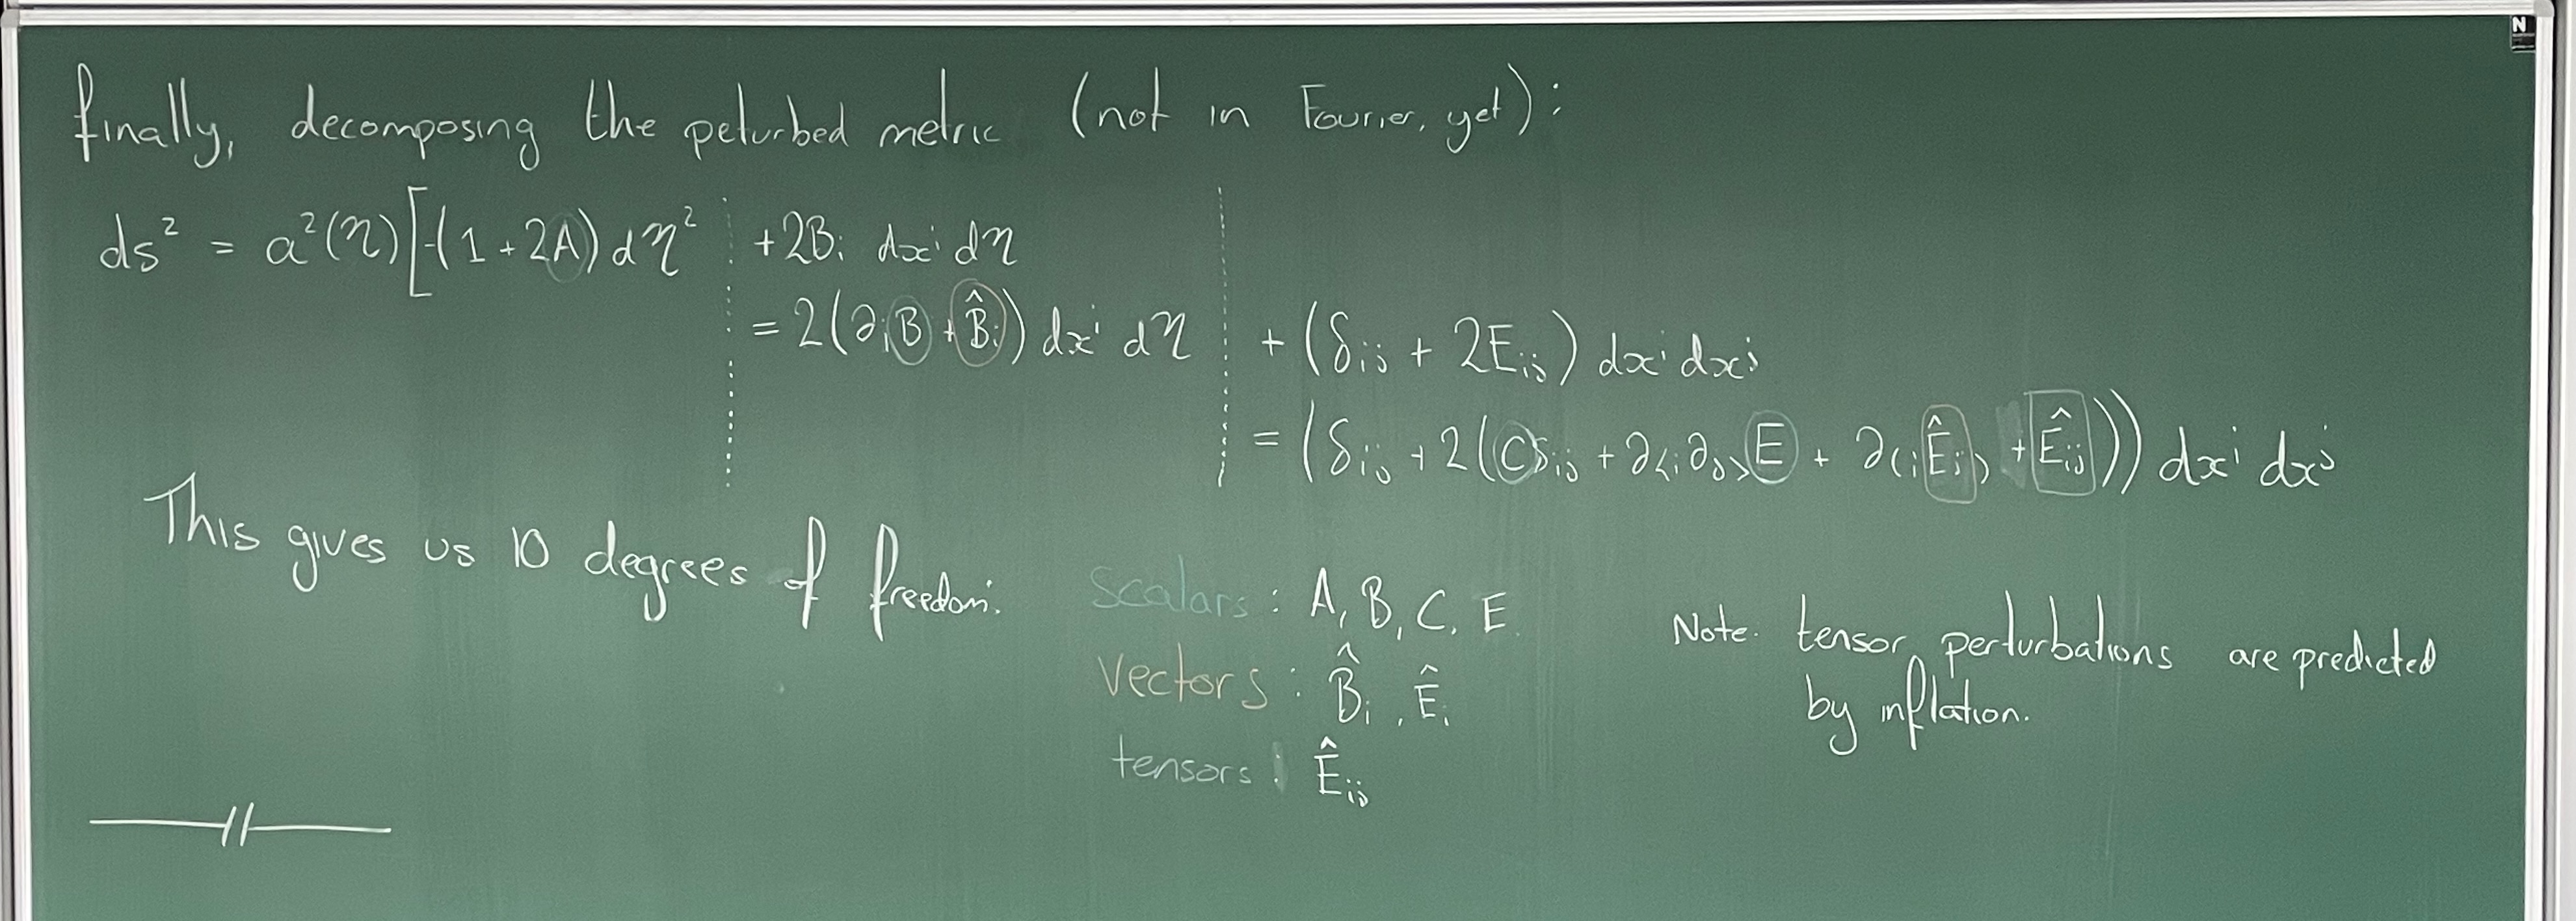 finally, decomposing the peturbed metric (not in Fourier, yet):
ds² = a²(η)[-(1+2A)dη² + 2Bᵢ dxⁱ dη
= 2(∂ᵢB + B̂ᵢ) dxⁱ dη + (δᵢⱼ + 2Eᵢⱼ) dxⁱ dxʲ
= (δᵢⱼ + 2(Cδᵢⱼ + ∂₍⟨ᵢ∂ⱼ⟩₎E + ∂₍ᵢÊⱼ₎ + Êᵢⱼ)) dxⁱ dxʲ
This gives us 10 degrees of freedom:
scalars: A, B, C, E
vectors: B̂ᵢ, Êᵢ
tensors: Êᵢⱼ
Note. tensor perturbations are predicted
by inflation.
N